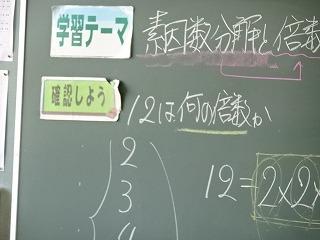 学習テーマ
素因数分解と倍数
確認しよう
12は何の倍数か
2
3
4
12=2×2×